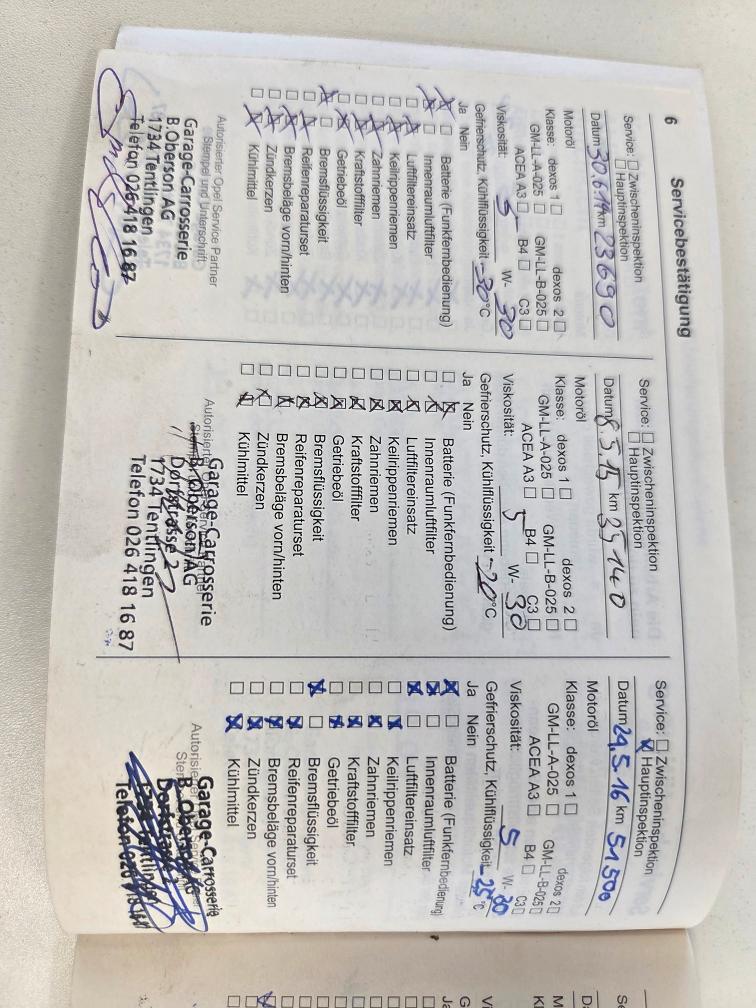 6
Servicebestätigung
Service: ☐ Zwischeninspektion
☐ Hauptinspektion
Datum 30.6.14 km 23690
Motoröl
Klasse: dexos 1 ☐ dexos 2 ☐
GM-LL-A-025 ☐ GM-LL-B-025 ☐
ACEA A3 ☐ B4 ☐ C3 ☐
Viskosität: 5 W- 30
Gefrierschutz, Kühlflüssigkeit -30 °C
Ja Nein
☒ ☐ Batterie (Funkfernbedienung)
☒ ☐ Innenraumluftfilter
☐ ☒ Luftfiltereinsatz
☐ ☒ Keilrippenriemen
☐ ☒ Zahnriemen
☐ ☒ Kraftstofffilter
☐ ☒ Getriebeöl
☒ ☐ Bremsflüssigkeit
☐ ☒ Reifenreparaturset
☐ ☒ Bremsbeläge vorn/hinten
☐ ☒ Zündkerzen
☐ ☒ Kühlmittel
Autorisierter Opel Service Partner
Stempel und Unterschrift
Garage-Carrosserie
B.Oberson AG
1734 Tentlingen
Telefon 026 418 16 87
Service: ☐ Zwischeninspektion
☐ Hauptinspektion
Datum 8.5.15 km 35140
Motoröl
Klasse: dexos 1 ☐ dexos 2 ☐
GM-LL-A-025 ☐ GM-LL-B-025 ☐
ACEA A3 ☐ B4 ☐ C3 ☐
Viskosität: 5 W- 30
Gefrierschutz, Kühlflüssigkeit -20 °C
Ja Nein
☐ ☒ Batterie (Funkfernbedienung)
☐ ☒ Innenraumluftfilter
☐ ☒ Luftfiltereinsatz
☐ ☒ Keilrippenriemen
☐ ☒ Zahnriemen
☐ ☒ Kraftstofffilter
☐ ☒ Getriebeöl
☐ ☒ Bremsflüssigkeit
☐ ☒ Reifenreparaturset
☐ ☒ Bremsbeläge vorn/hinten
☐ ☒ Zündkerzen
☐ ☒ Kühlmittel
Garage-Carrosserie
B. Oberson AG
Dorfstrasse 2
1734 Tentlingen
Telefon 026 418 16 87
Service: ☐ Zwischeninspektion
☒ Hauptinspektion
Datum 24.5.16 km 51500
Motoröl
Klasse: dexos 1 ☐ dexos 2 ☐
GM-LL-A-025 ☐ GM-LL-B-025 ☐
ACEA A3 ☐ B4 ☐ C3 ☐
Viskosität: 5 W- 30
Gefrierschutz, Kühlflüssigkeit -25 °C
Ja Nein
☒ ☐ Batterie (Funkfernbedienung)
☒ ☐ Innenraumluftfilter
☒ ☐ Luftfiltereinsatz
☐ ☒ Keilrippenriemen
☐ ☒ Zahnriemen
☐ ☒ Kraftstofffilter
☐ ☒ Getriebeöl
☒ ☐ Bremsflüssigkeit
☐ ☒ Reifenreparaturset
☐ ☒ Bremsbeläge vorn/hinten
☐ ☒ Zündkerzen
☐ ☒ Kühlmittel
Garage-Carrosserie
B. Oberson AG
Tentlingen
Telefon 026